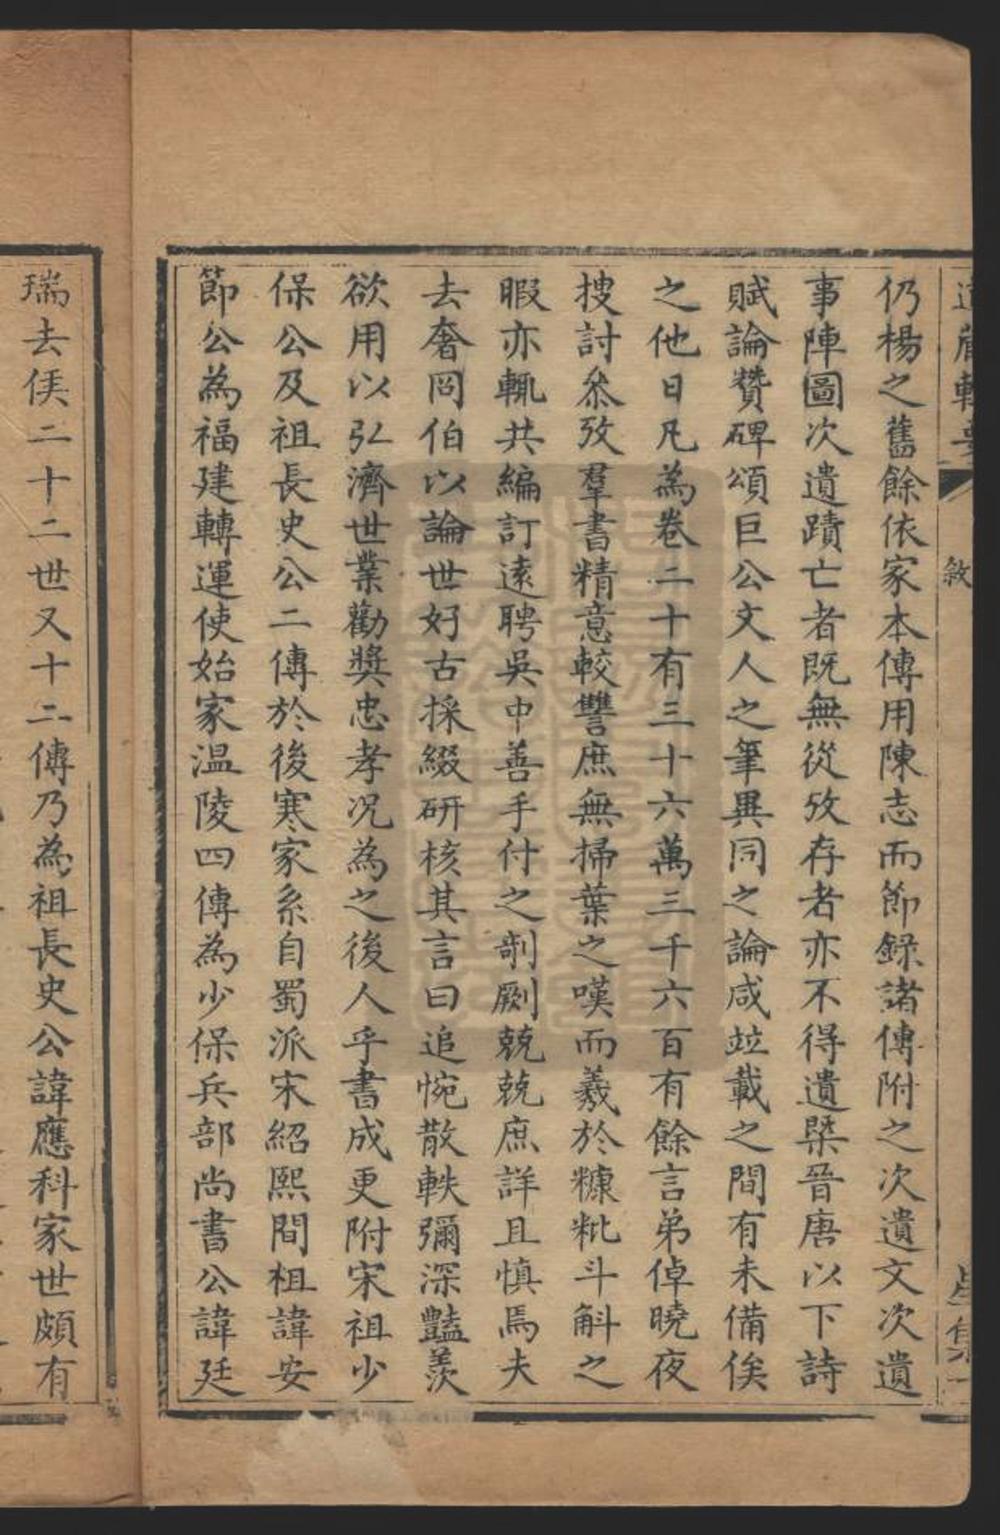 道藏輯要
敘
仍楊之舊餘依家本傳用陳志而節錄諸傳附之次遺文次遺
事陣圖次遺蹟亡者既無從攷存者亦不得遺槩晉唐以下詩
賦論贊碑頌巨公文人之筆異同之論咸竝載之間有未備俟
之他日凡為卷二十有三十六萬三千六百有餘言弟倬曉夜
搜討叅攷羣書精意較讐庶無掃葉之嘆而羲於糠粃斗斛之
暇亦輒共編訂遠聘吳中善手付之剞劂兢兢庶詳且慎焉夫
去奢岡伯以論世好古採綴研核其言曰追惋散軼彌深豔羨
欲用以弘濟世業勸獎忠孝况為之後人乎書成更附宋祖少
保公及祖長史公二傳於後寒家系自蜀派宋紹熙間祖諱安
節公為福建轉運使始家温陵四傳為少保兵部尚書公諱廷
瑞去侯二十二世又十二傳乃為祖長史公諱應科家世頗有